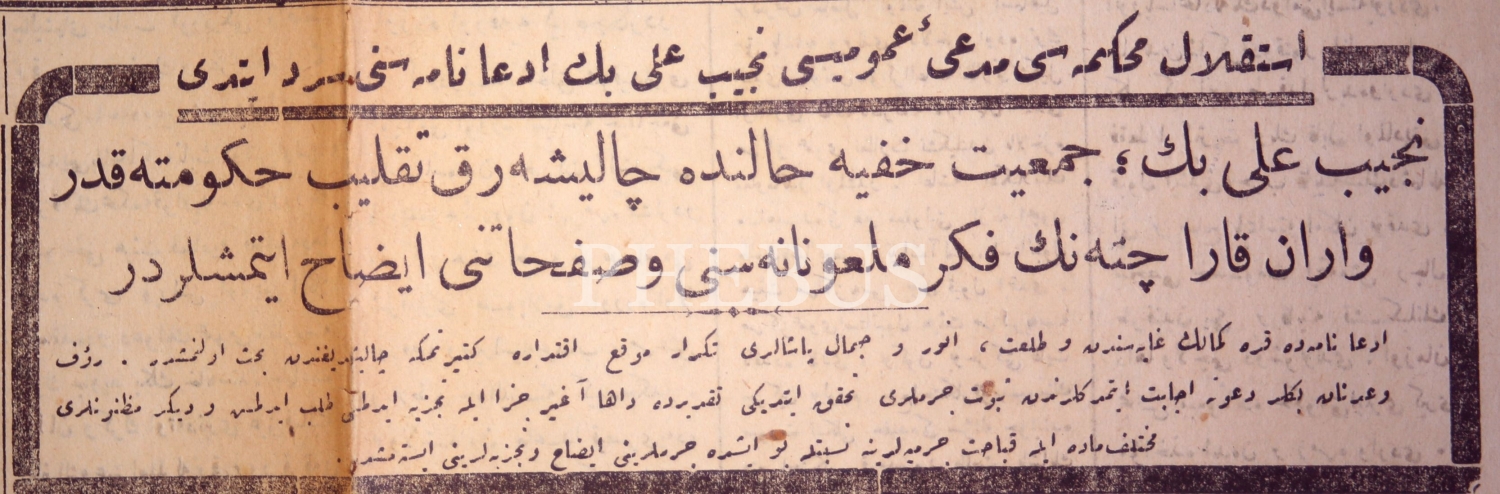 استقلال محكمه سى مدعئ عموميسى نجيب على بك ادعا نامه سنى سرد ايتدى
نجيب على بك ؛ جمعيت خفيه حالنده چاليشه رق تقليب حكومته قدر
واران قارا چته نك فكر ملعونانه سنى وصفحاتنى ايضاح ايتمشلردر
PHEBUS
ادعا نامه ده قره كمالك غايه سندن و طلعت ، انور و جمال پاشالرى تكرار موقع اقتداره كتيرتمكه چاليشديغندن بحث اولنمشدر . رؤف
وعدنان بكلر دعوته اجابت ايتمدكلرندن ثبوت جرملرى تحقق ايتديكى تقديرده داها آغير جزا ايله تجزيه ايدلمه طلب ايدلمش و ديكر مظنونلرى
مختلف ماده ايله قباحت جرميه لرينه نسبتله بو ايشده جرملرينى ايضاح و تجزيه لرينى ايسته مشدر .